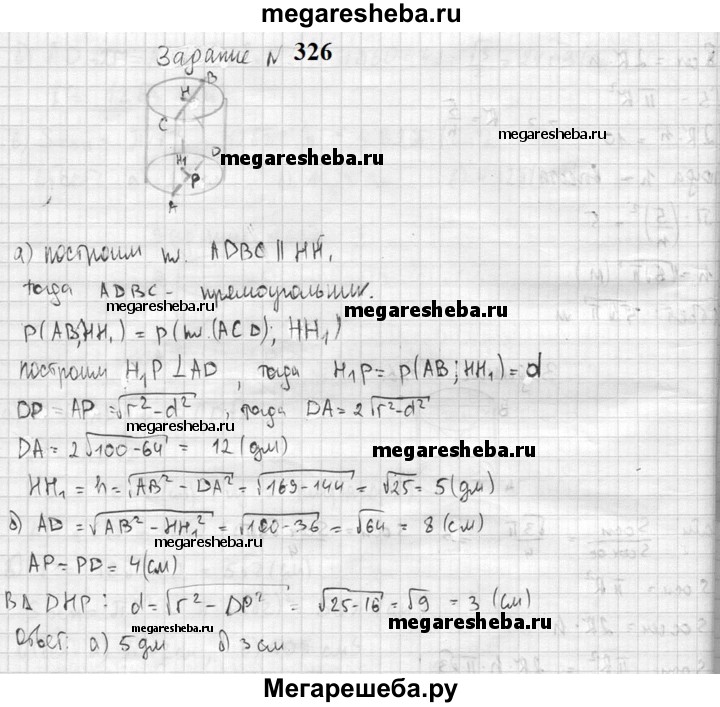 megaresheba.ru
Задание № 326
B
H
C
megaresheba.ru
H₁ D
megaresheba.ru
P
A
а) построим пл. ADBC || HH₁
тогда ADBC - прямоугольник.
megaresheba.ru
megaresheba.ru
ρ(AB;HH₁) = ρ(пл.(ACD); HH₁)
построим H₁P ⊥ AD, тогда H₁P = ρ(AB; HH₁) = d
megaresheba.ru
DP = AP = √r² - d², тогда DA = 2√r² - d²
DA = 2√100 - 64 = 12 (дм)
megaresheba.ru
HH₁ = h = √AB² - DA² = √169 - 144 = √25 = 5 (дм)
б) AD = √AB² - HH₁² = √100 - 36 = √64 = 8 (см)
megaresheba.ru
AP = PD = 4 (см)
В Δ DHP: d = √r² - DP² = √25 - 16 = √9 = 3 (см)
megaresheba.ru
megaresheba.ru
Ответ: а) 5 дм б) 3 см
megaresheba.ru
Мегарешеба.ру